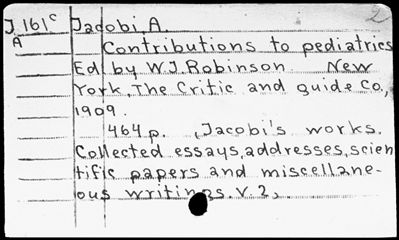 2
J 161c Jacobi A.
A Contributions to pediatrics
Ed. by W.J. Robinson New
York, The Critic and guide Co.,
1909.
464 p. , Jacobi's works.
Collected essays, addresses, scien
tific papers and miscellane-
ous writings. V. 2,